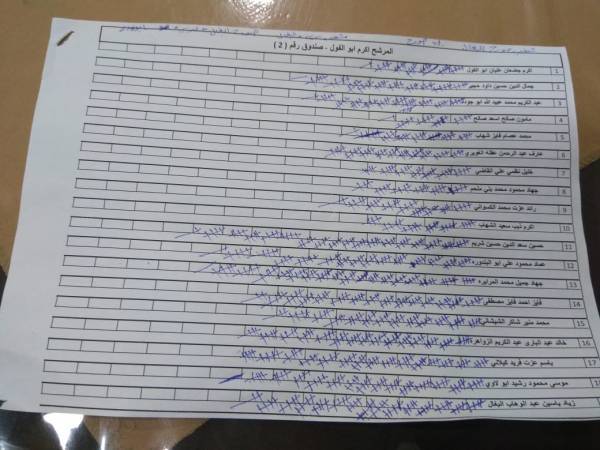 المرشح اكرم ابو الفول - صندوق رقم ( 2 )
1 اكرم جضعان عليان ابو الفول
2 جمال الدين حسين داود حجير
3 عبد الكريم محمد عبيد الله ابو جودة
4 مأمون صالح اسعد صالح
5 محمد عصام فايز شهاب
6 عارف عبد الرحمن عطله الغويري
7 خليل نظمي علي القاضي
8 جهاد محمود محمد بني ملحم
9 رائد عزت محمد الكسواني
10 اكرم ذيب سعيد الشهاب
11 حسين سعد الدين حسين شريم
12 عماد محمود علي ابو البندوره
13 جهاد جميل محمد المرايره
14 فايز احمد فايز مصطفى
15 محمد منير شاكر الشيشاني
16 خالد عبد الباري عبد الكريم الزواهرة
17 باسم عزت فريد كيلاني
18 موسى محمود رشيد ابو لاوي
زياد ياسين عبد الوهاب البقال